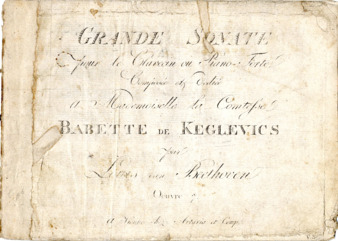 GRANDE SONATE
pour le Clavecin ou Piano-Forte
Composée et Dediée
a Mademoiselle la Comtesse
BABETTE DE KEGLEVICS
par
Louis van Beethoven
Oeuvre 7
à Vienne chez Artaria et Comp.